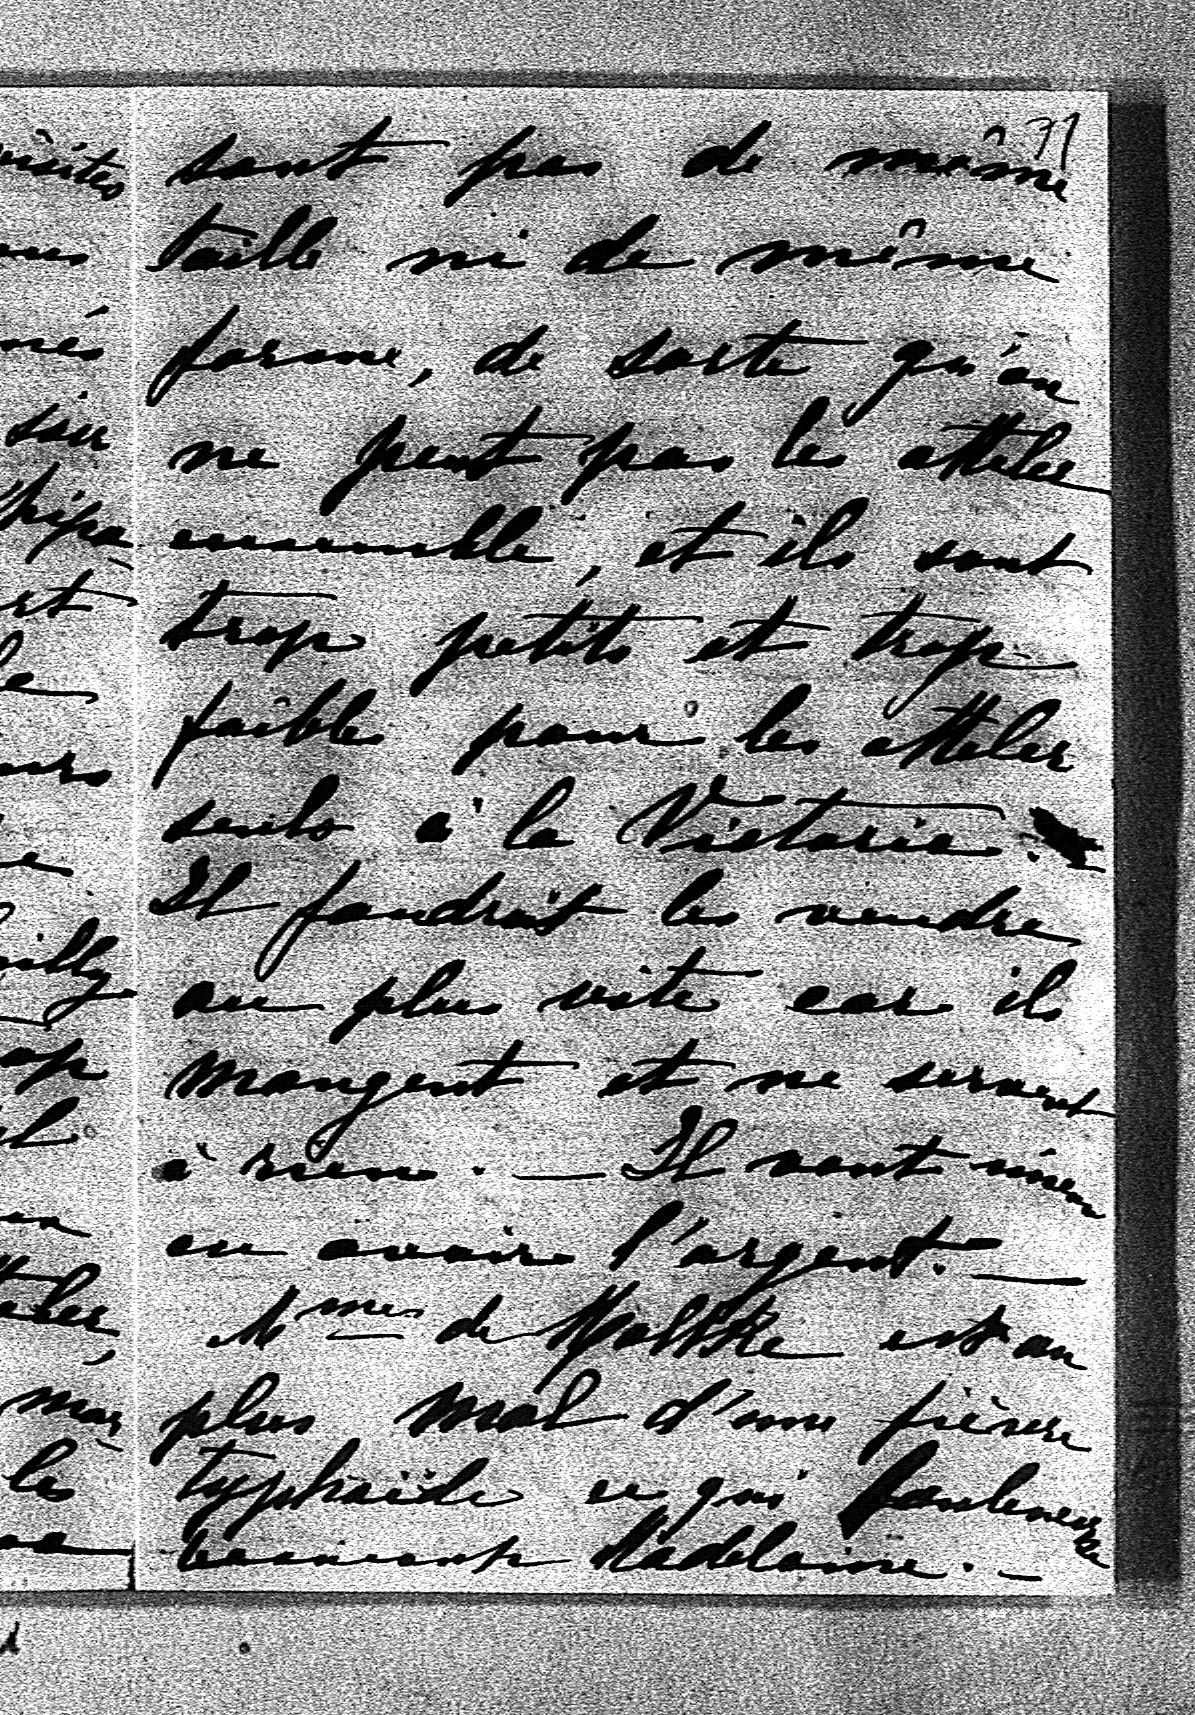 31
sont pas de même
taille ni de même
forme, de sorte qu'on
ne peut pas les atteler
ensemble, et ils sont
trop petits et trop
faibles pour les atteler
seuls à la Victoria.
Il faudrait les vendre
au plus vite car ils
mangent et ne servent
à rien. — Il vaut mieux
en avoir l'argent. —
Mme de Moltke est au
plus mal d'une fièvre
typhoïde ce qui bouleverse
beaucoup Madelaine. —